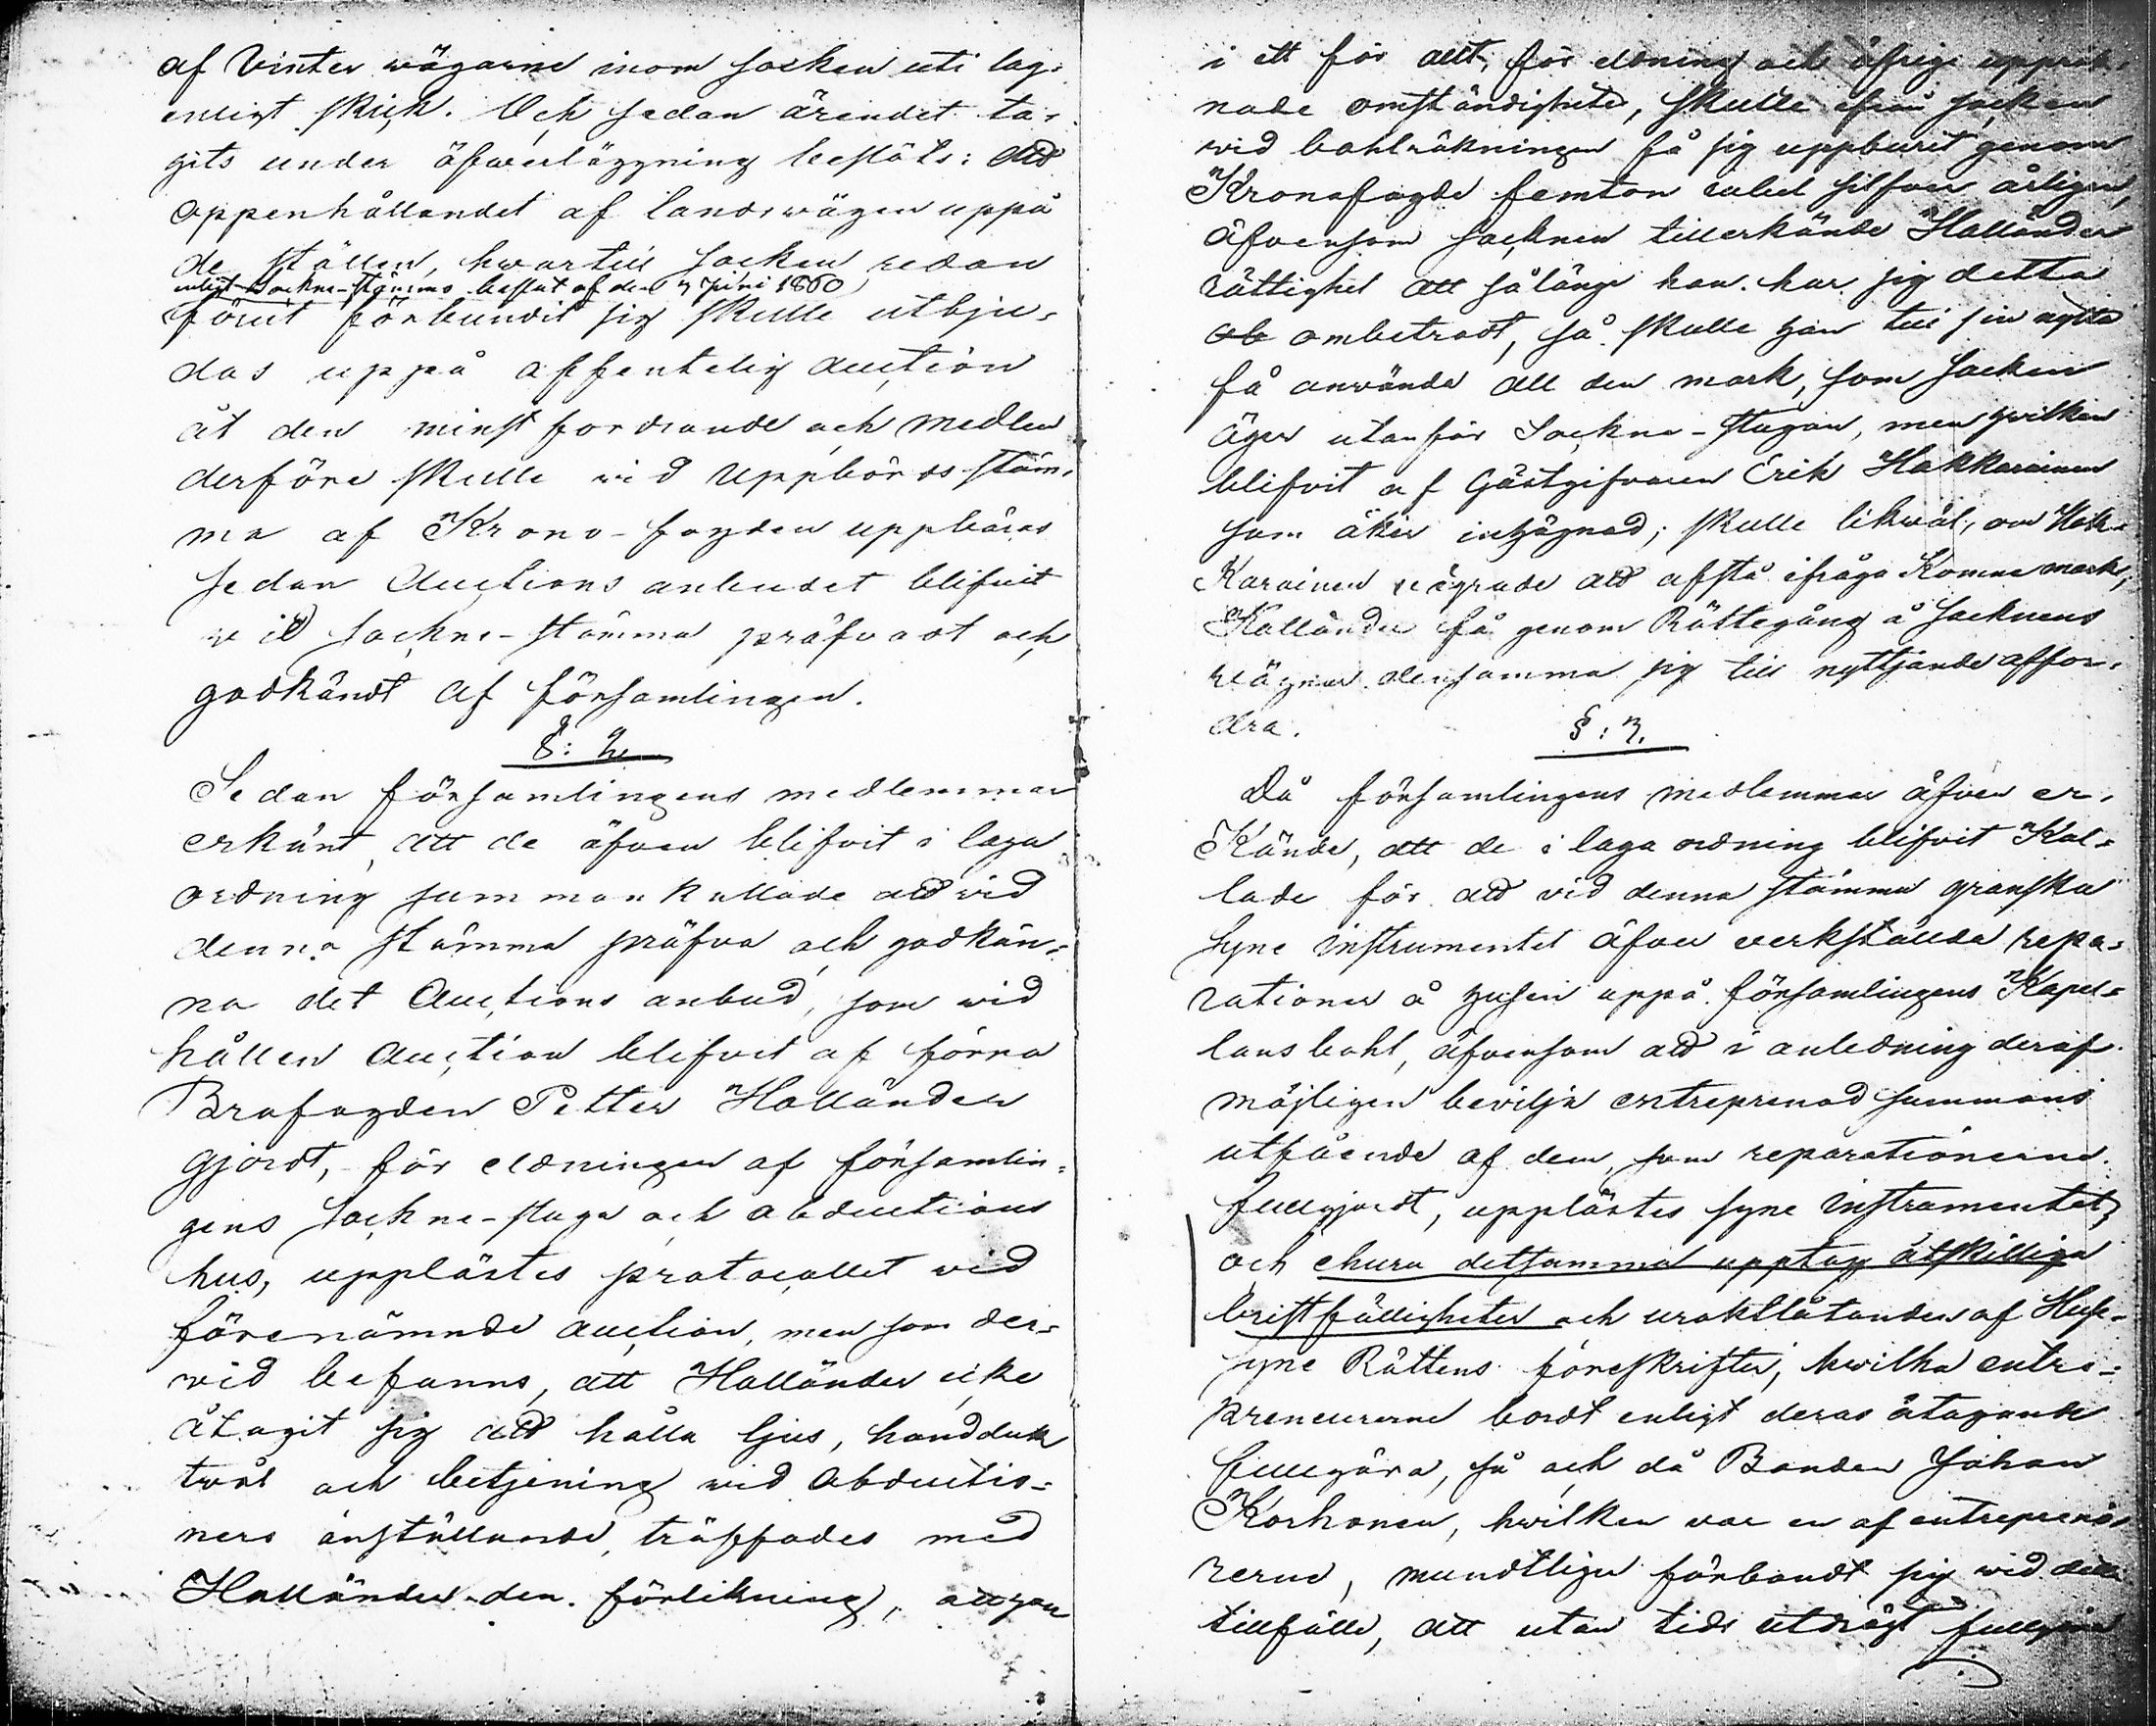 af Vinter wägarne inom socken uti lag-
enligt skick. Och sedan ärendet ta-
gits under öfwerläggning beslöts: att
öppenhållandet af landswägen uppå
de ställen, hwartill socken redan
enligt Sockne-stämmo beslut af den 7 Juni 1860
förut förbundit sig skulle utbju-
das uppå offentelig auction
åt den minst fordrande och medlen
derföre skulle wid Uppbörds stäm-
ma af Krono-fogden uppbäras
sedan Auctions anbudet blifwit
wid sockne-stämma pröfwadt och
godkändt af församlingen.
§: 2
Sedan församlingens medlemmar
erkänt, att de äfven blifvit i laga
ordning sammankallade att wid
denna stämma pröfva och godkän-
na det Auctions anbud, som wid
hållen Auction blifvit af förra
Brofogden Petter Holländer
gjordt, för eldningen af församlin-
gens Sockne-stuga och abductions
hus, upplästes protocollet wid
förenämnde auction, men som der-
wid befanns, att Holländer icke
åtagit sig att hålla ljus, handduk
twål och betjening wid abductio-
ners anställande, träffades med
Holländer den förlikning, att han
i ett för allt, för eldning och öfrige uppräk-
nade omständigheter, skulle ifrån socken
wid bohlräkningen få sig uppburit genom
Kronofogde femton rubel silfver årligen,
äfvensom socknen tillerkände Holländer
rättighet att sålänge han har sig detta
ombetrodt, så skulle han till sin nytta
få använda all den mark, som socken
äger utanför Sockne-stugan, men hvilken
blifvit af Gästgifvaren Erik Hakkarainen
som åker inhägnad; skulle likväl, om Hak-
karainen vägrade att afstå ifråga komne mark,
Holländer få genom Rättegång å Socknens
vägnar densamma sig till nyttjande affor-
dra.
§: 3.
Då församlingens medlemmar äfven er-
kände, att de i laga ordning blifvit kal-
lade för att vid denna stämma granska
syne instrumentet öfver verkstälda repa-
rationer å husen uppå församlingens Kapel-
lans bohl, äfvensom att i anledning deraf
möjligen bevilja entreprenad summans
utfående af dem, som reparationerne
fullgjordt, upplästes syne instrumentet,
och ehuru detsamma upptog åtskilliga
bristfälligheter och uraktlåtanden af Huse-
syne Rättens föreskrifter, hwilka entre-
preneurerne bordt enligt deras åtagande
fullgöra, så och då Bonden Johan
Korhonen, hwilken var en af entreprenö-
rerne, mundtligen förbandt sig wid detta
tillfälle, att utan tids utdrägt fullgöra